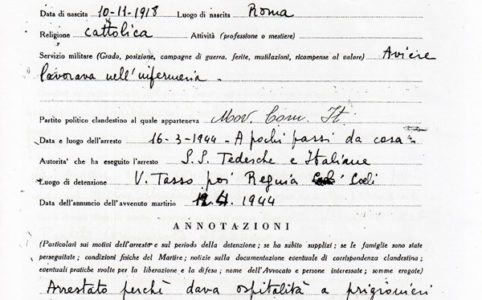 Data di nascita 10-11-1918 Luogo di nascita Roma
Religione cattolica Attività (professione o mestiere)
Servizio militare (Grado, posizione, campagne di guerra, ferite, mutilazioni, ricompense al valore) Aviere
lavorava nell'infermeria.
Partito politico clandestino al quale apparteneva Mov. Com. It.
Data e luogo dell'arresto 16-3-1944 - A pochi passi da casa
Autorita' che ha eseguito l'arresto S.S. Tedesche e Italiane
Luogo di detenzione V. Tasso poi Regina Coeli
Data dell'annuncio dell'avvenuto martirio 4 1944
ANNOTAZIONI
(Particolari sui motivi dell'arresto e sul periodo della detenzione; se ha subito supplizi; se le famiglie sono state
perseguitate; condizioni fisiche del Martire; notizie sulla documentazione eventuale di corrispondenza clandestina;
eventuali pratiche svolte per la liberazione e la difesa; nome dell'Avvocato e persone interessate; somme erogate)
Arrestato perchè dava ospitalità a prigionieri